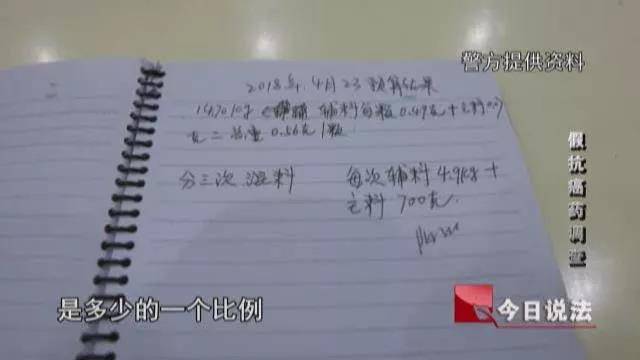 警方提供资料
2018年.4月23预算结果
14.70kg 辅料每颗0.49克+主料0.07
克=总重0.56克/颗
分三次混料 每次辅料4.9kg+
主料 700克.
假抗癌药调查
是多少的一个比例
今日说法